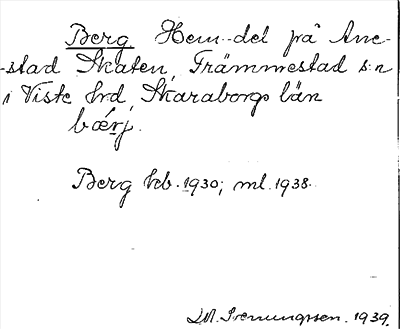 Berg Hem.-del på Ane-
-stad Skaten, Främmestad s:n
i Viste hrd, Skaraborgs län
bǽrj.
Berg kb. 1930; ml. 1938.
1939.